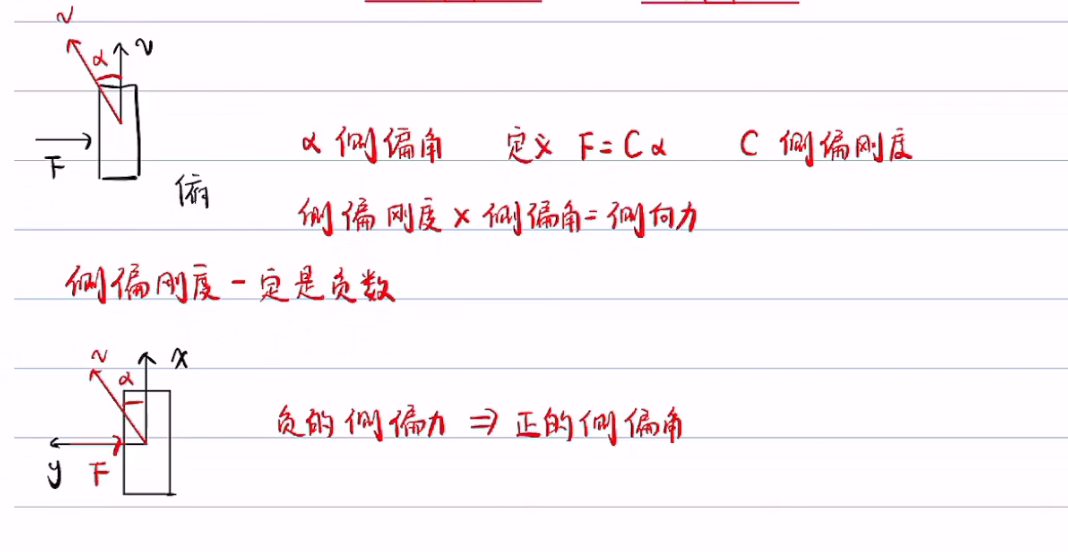 v
α v
F
俯
α 侧偏角 定义 F=Cα C 侧偏刚度
侧偏刚度×侧偏角=侧向力
侧偏刚度一定是负数
v x
α
y F
负的侧偏力 ⇒ 正的侧偏角